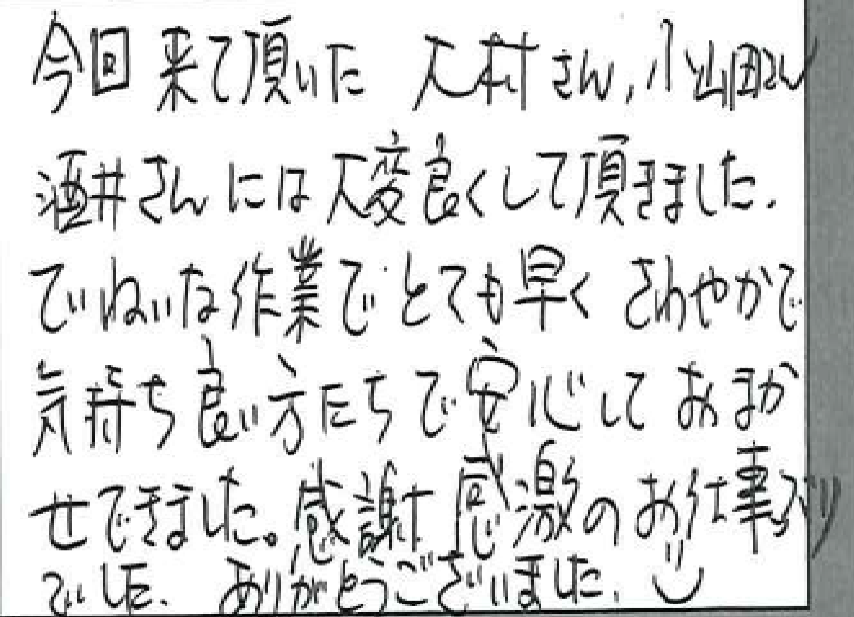 今回来て頂いた 大村さん,小山田さん
酒井さんには大変良くして頂きました.
ていねいな作業でとても早く さわやかで
気持ち良い方たちで安心しておまか
せできました。感謝 感激のお仕事ぶり
でした. ありがとうございました.